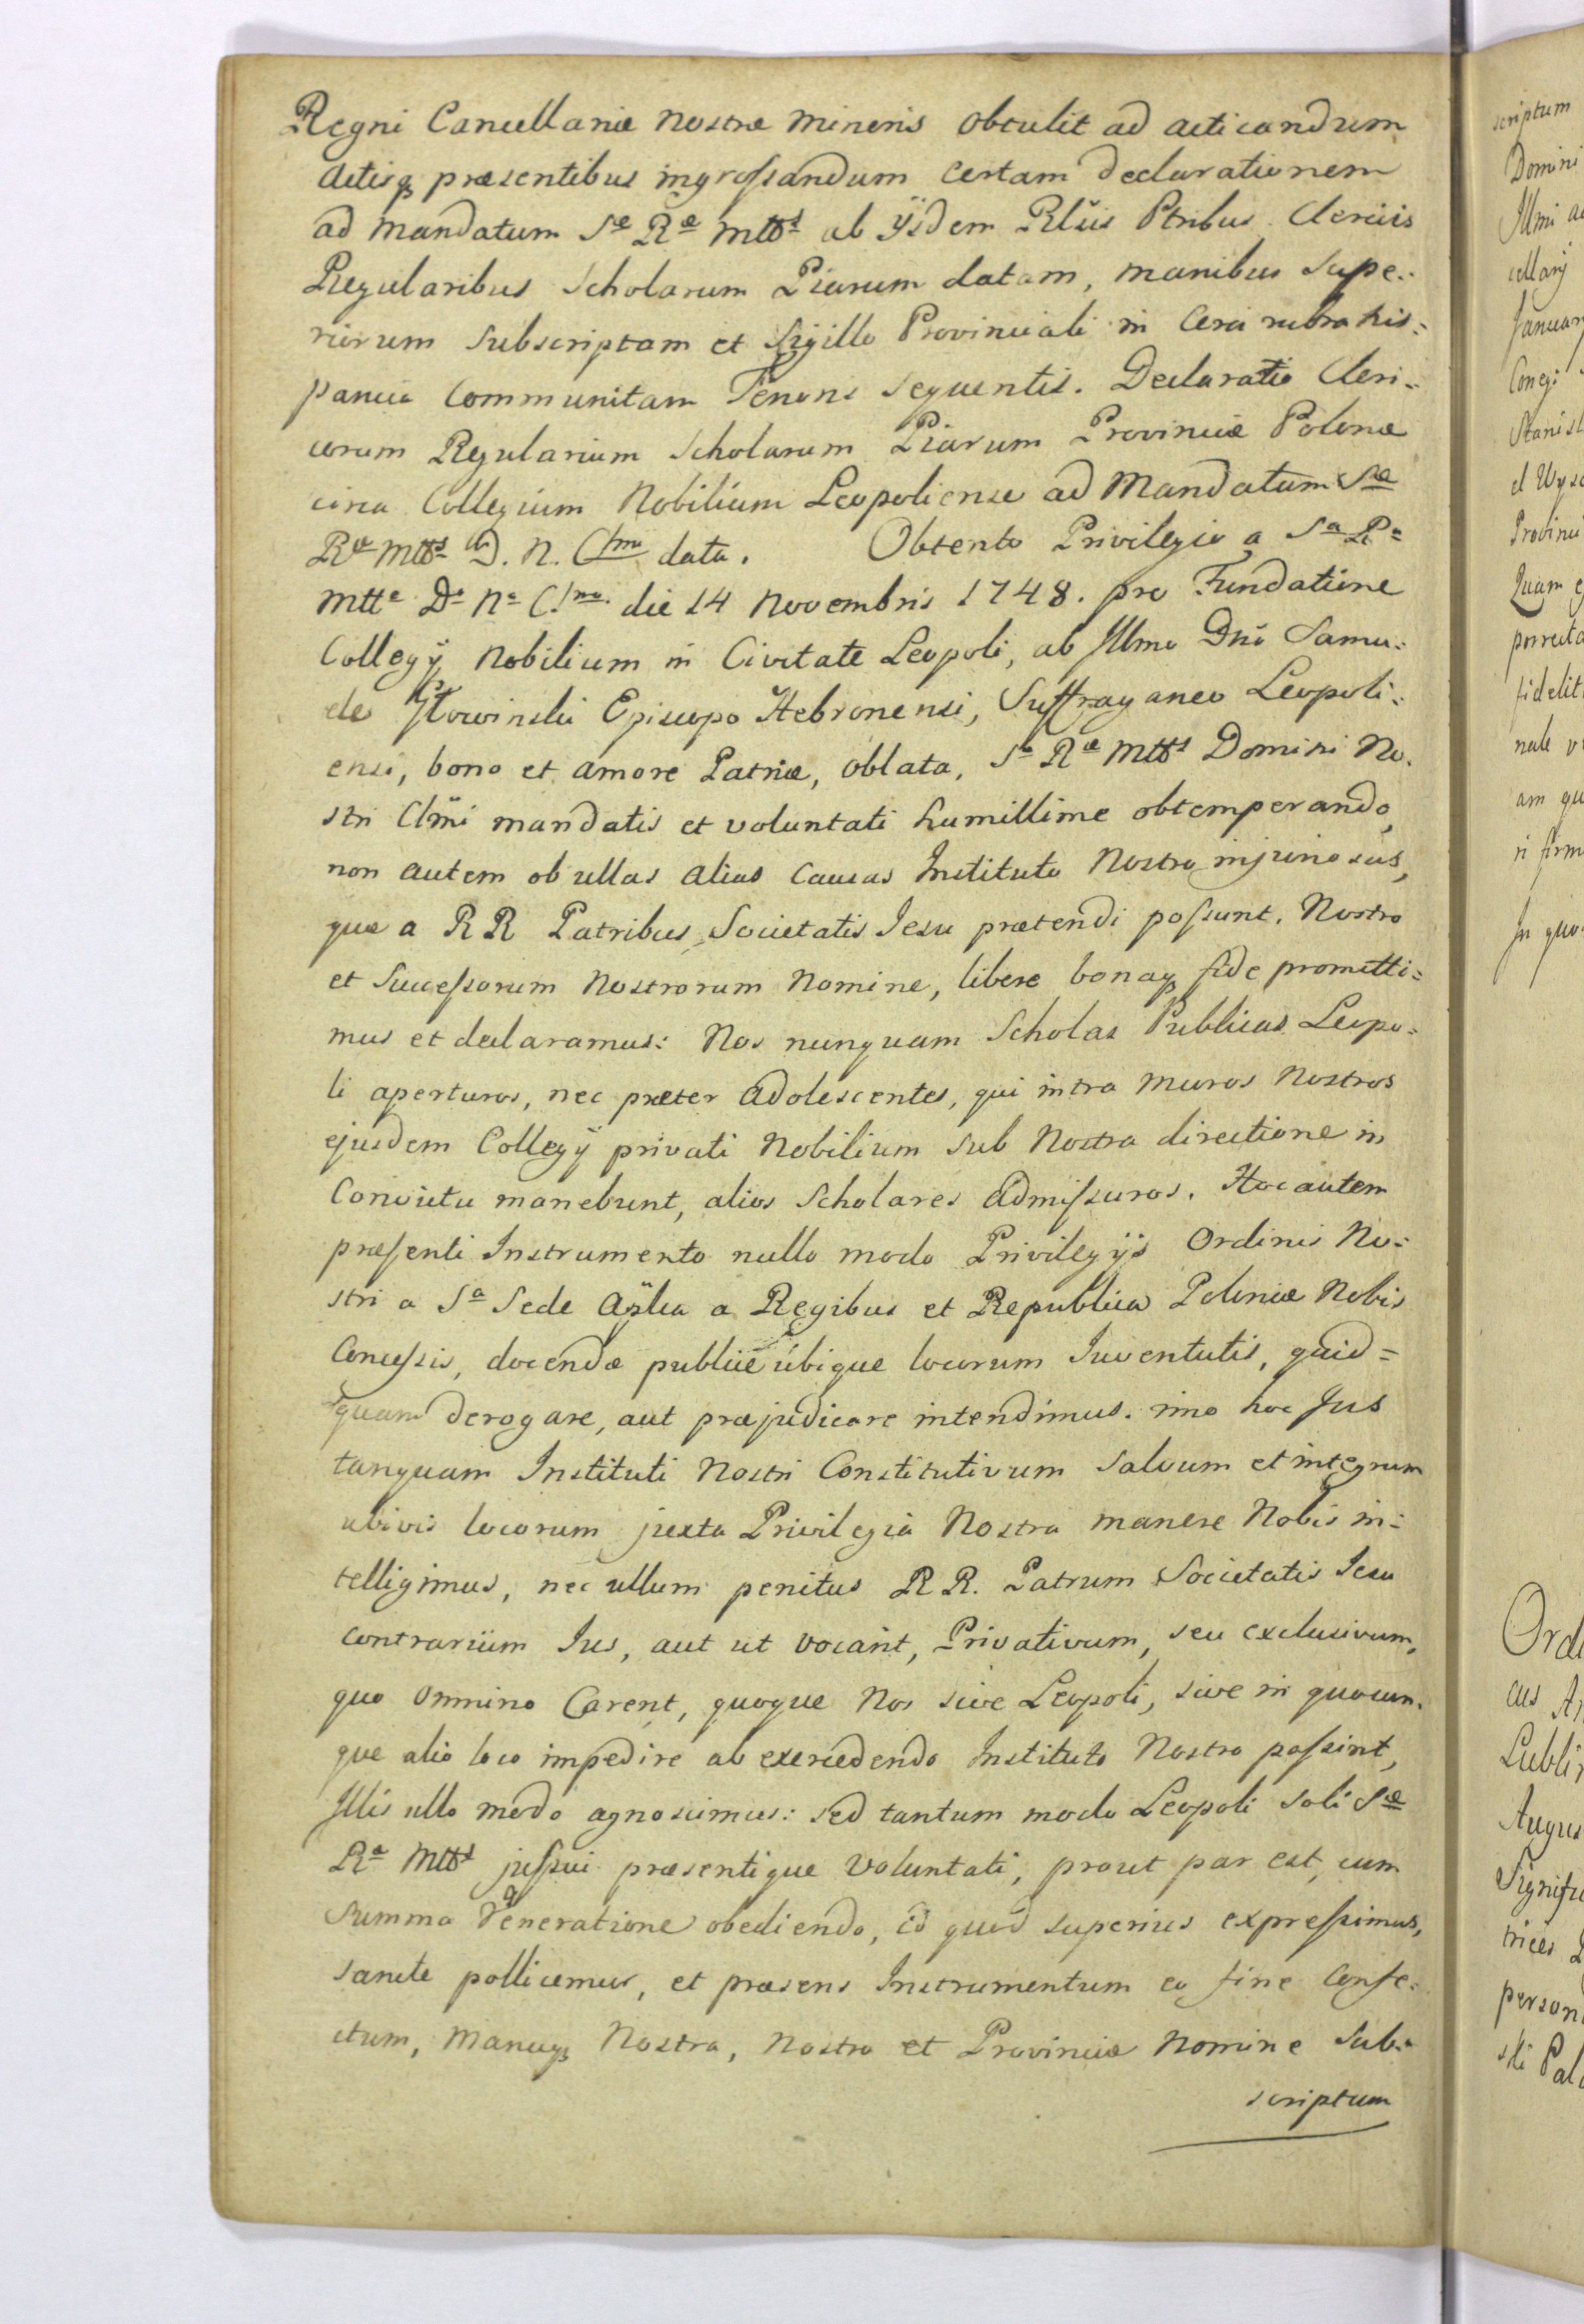 Regni Cancellariæ Nostræ Minoris obtulit ad acticandum
Actisq̃ præsentibus ingrossandum certam declarationem
ad mandatum Sæ Ræ Mtts ab ijsdem Rlũs Ptribus Clericis
Regularibus Scholarum Piarum datam, manibus Supe-
riorum subscriptam et Sigillo Provinciali in Cera rubra his=
panica Communitam Tenoris sequentis. Declaratio Cleri=
corum Regularium Scholarum Piarum Provinciæ Polonæ
circa Collegium Nobilium Leopoliense ad Mandatum Sæ
Ræ Mtts D. N. Clmi data. Obtento Privilegio a Sa Ra
Mtte Do No Clmo die 14 Novembris 1748. pro Fundatione
Collegÿ Nobilium in Civitate Leopoli, ab Illmo Dnõ Samu=
ele Głowinski Episcopo Hebronensi, Suffraganeo Leopoli=
ensi, bono et amore Patriæ, oblata, Sæ Ræ Mtts Domini No.
stri Clm̃i mandatis et voluntati humillime obtemperando,
non autem ob ullas alias causas Instituto Nostro injuriosas,
quæ a RR Patribus Societatis Iesu prætendi possunt. Nostro
et Successorum Nostrorum Nomine, libere bonaq̃ fide promitti=
mus et declaramus: Nos nunquam Scholas Publicas Leopo=
li aperturos, nec præter Adolescentes, qui intra muros Nostros
ejusdem Collegÿ privati Nobilium sub Nostra directione in
Convictu manebunt, alios Scholares Admissuros. Hoc autem
præsenti Instrumento nullo modo Privilegÿs Ordinis No=
stri a Sa Sede Aplica a Regibus et Republica Poloniæ Nobis
Concessis, docendæ publice ubique locorum Iuventutis, quid=
quam derogare, aut præjudicare intendimus. imo hoc Jus
tanquam Instituti Nostri Constitutivum salvum et integrum
ubivis locorum juxta Privilegia Nostra manere Nobis in=
telligimus, nec ullum penitus RR. Patrum Societatis Iesu
contrarium Ius, aut ut vocant, Privativum, seu exclusivum,
quo omnino Carent, quoque Nos sive Leopoli, sive in quocun.
que alio loco impedire ab exercedendo Instituto Nostro possint,
Illis ullo modo agnoscimus: sed tantum modo Leopoli soli Sæ
Ræ Mtts jussui præsentique voluntati, prout par est, cum
summa Veneratione obediendo, id quod superius expressimus,
sancte pollicemur, et præsens Instrumentum eo fine Confe=
ctum, Manuq̃ Nostra, Nostro et Provinciæ Nomine Sub=
scriptum